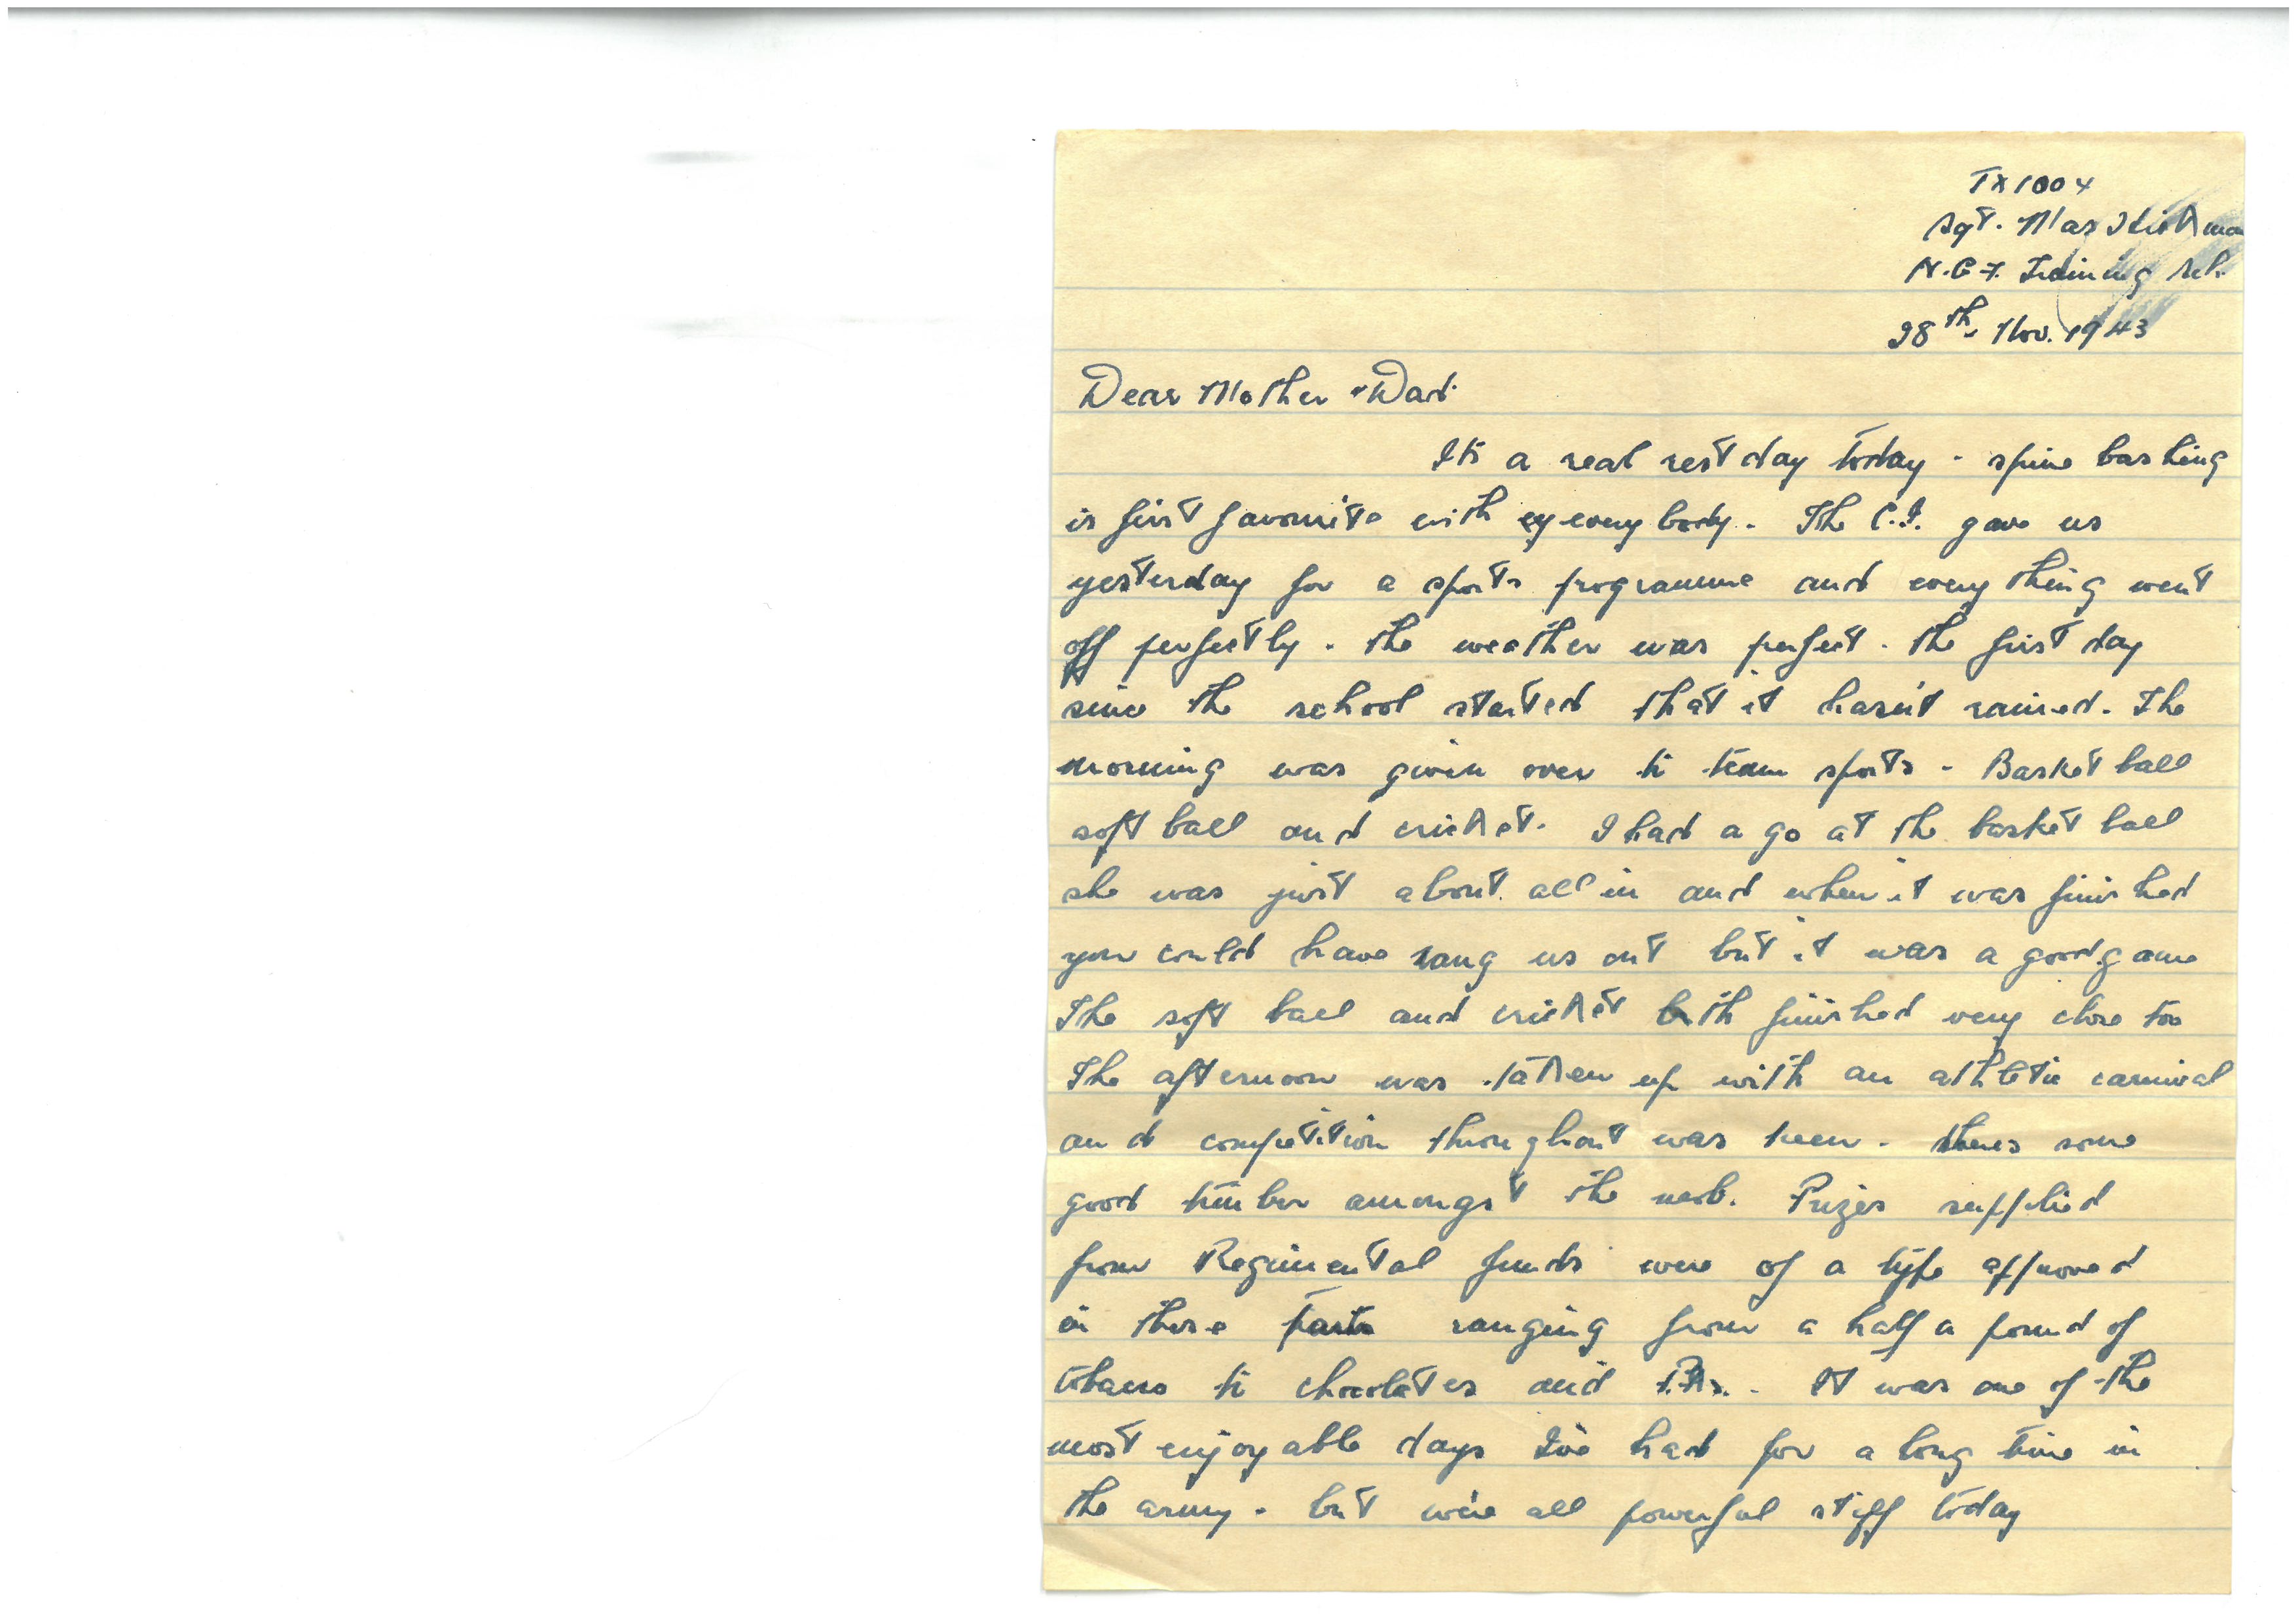 TX1004
Sgt. Max Hickman
N.G.F. Training Sch.
28th Nov. 1943
Dear Mother & Dad
Its a real rest day today - spine bashing
is first favourite with ey everybody. The C.I. gave us
yesterday for a sports programme and everything went
off perfectly. the weather was perfect. the first day
since the school started that it hasn't rained. The
morning was given over to team sports - Basket ball
soft ball and cricket. I had a go at the basket ball
she was just about all in and when it was finished
you could have rang us out but it was a good game
The soft ball and cricket both finished very close too
The afternoon was taken up with an athletic carnival
and competition throughout was keen. theres some
good timber amongst the mob. Prizes supplied
from Regimental funds were of a type approved
in these parts ranging from a half a pound of
tobacco to chocolates and It was one of the
most enjoyable days I've had for a long time in
the army - but we're all powerful stiff today